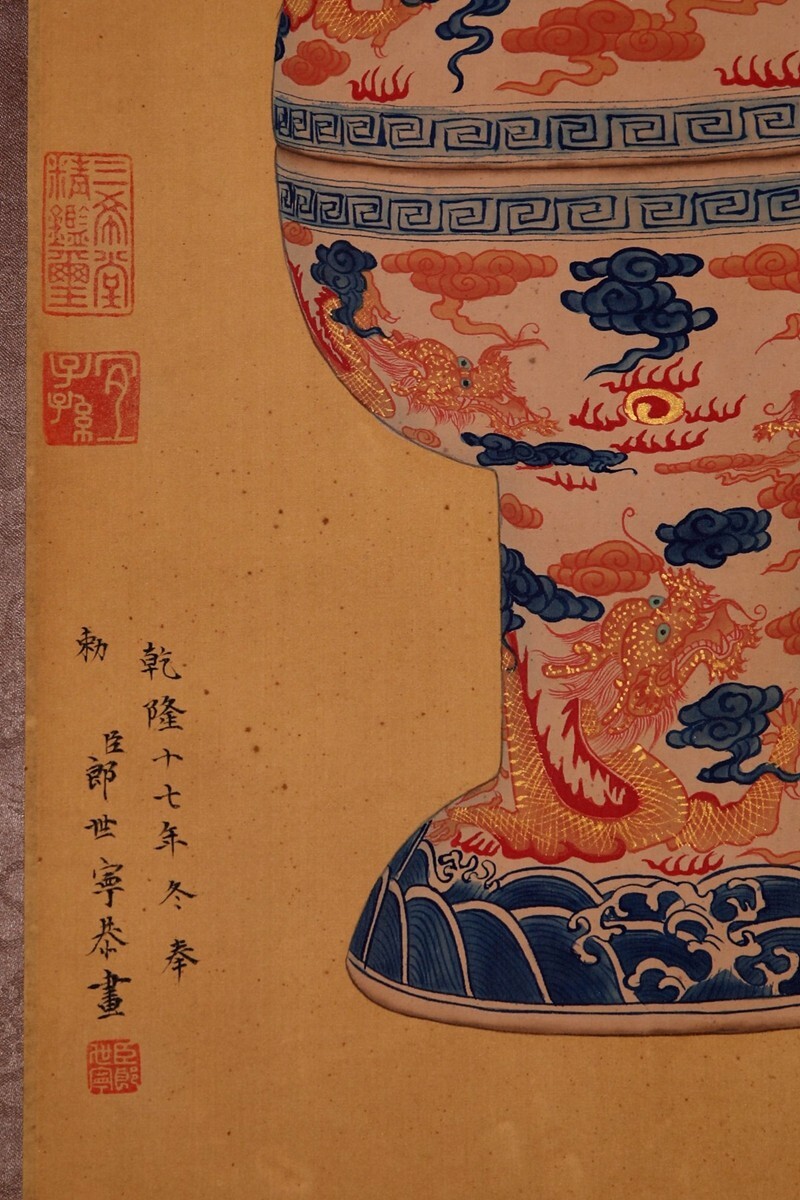 三希堂
精鑑璽
宜
子孫
乾隆十七年冬奉
勅
臣郎世寧恭畫
臣郎
世寧